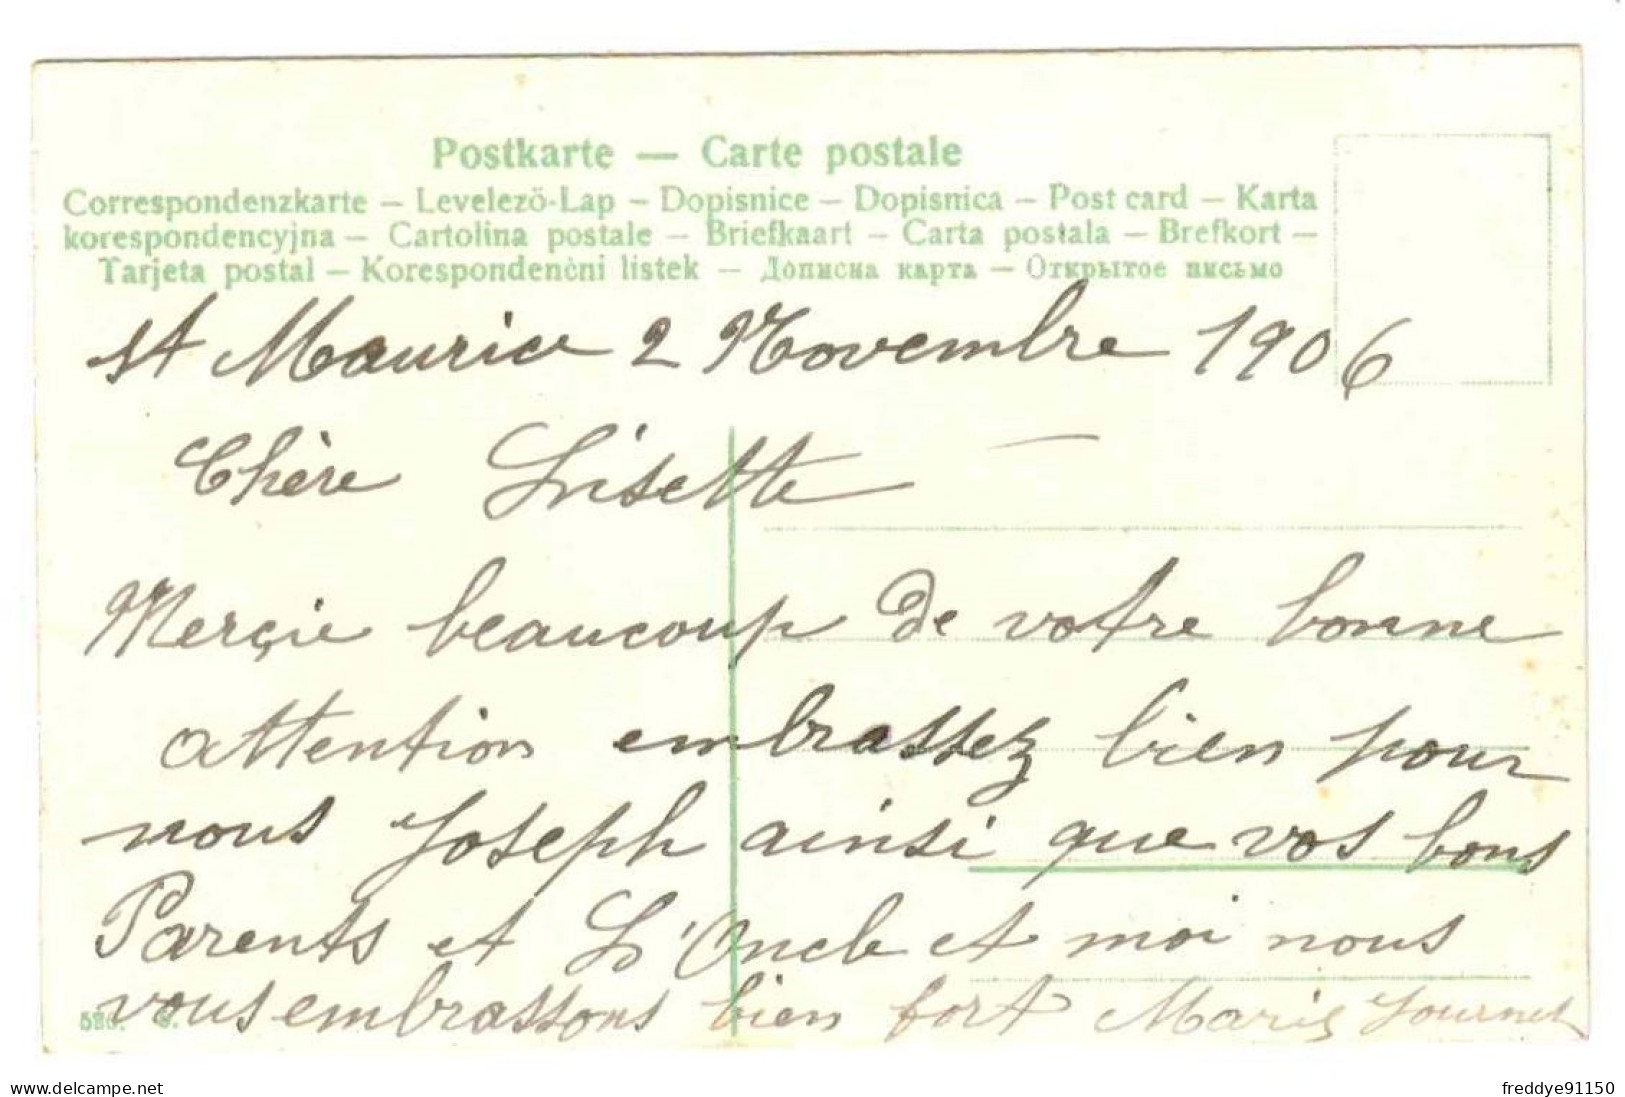 Postkarte — Carte postale
Correspondenzkarte – Levelező-Lap – Dopisnice – Dopisnica – Post card – Karta
korespondencyjna – Cartolina postale – Briefkaart – Carta postala – Brefkort –
Tarjeta postal – Korespondenčni listek – Дописна карта – Открытое письмо
St Maurice 2 Novembre 1906
Chère Lisette
Merçie beaucoup de votre bonne
attention embrassez bien pour
nous Joseph ainsi que vos bons
Parents et L'Oncle et moi nous
vous embrassons bien fort Marie Journet
www.delcampe.net
freddye91150